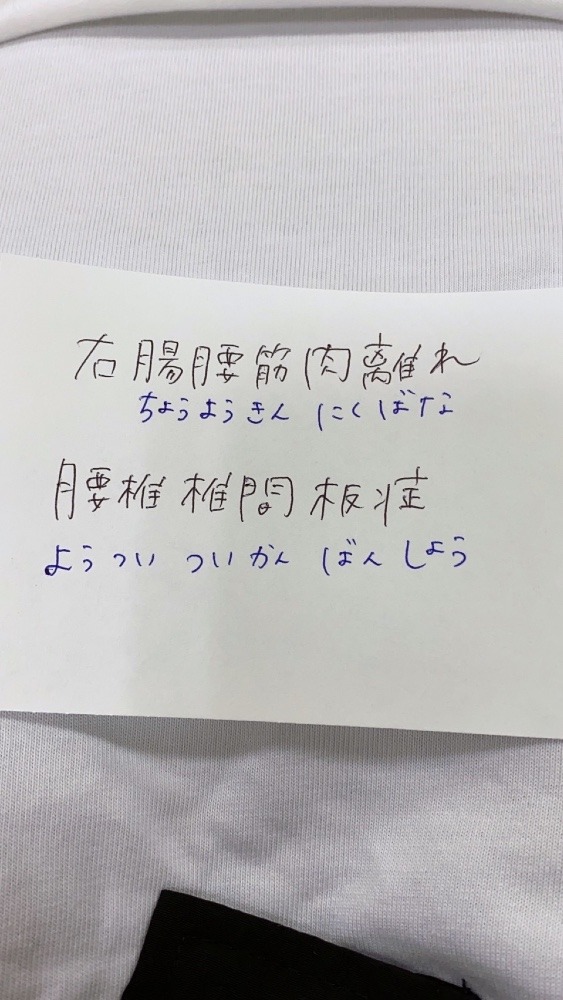 右腸腰筋肉離れ
ちょうようきん にくばな
腰椎椎間板症
ようつい ついかん ばんしょう